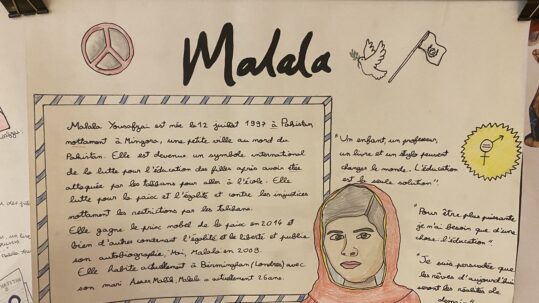 Malala
Malala Yousafzai est née le 12 juillet 1997 à Pakistan
notamment à Mingora, une petite ville au nord du
Pakistan. Elle est devenue un symbole international
de la lutte pour l'éducation des filles après avoir été
attaquée par les talibans pour aller à l'école. Elle
lutte pour la paix et l'égalité et contre les injustices
notamment les restrictions par les talibans.
Elle gagne le prix nobel de la paix en 2014 et
bien d'autres concernant l'égalité et la liberté et publie
son autobiographie, Moi, Malala en 2009.
Elle habite actuellement à Birmingham (Londres) avec
son mari Asser Malik. Malala a actuellement 26 ans
"Un enfant, un professeur,
un livre et un stylo peuvent
changer le monde. L'éducation
est la seule solution"
"Pour être plus puissante
je n'ai besoin que d'une
chose: l'éducation"
"Je suis persuadée que
les rêves d'aujourd'hui
seront les réalités de